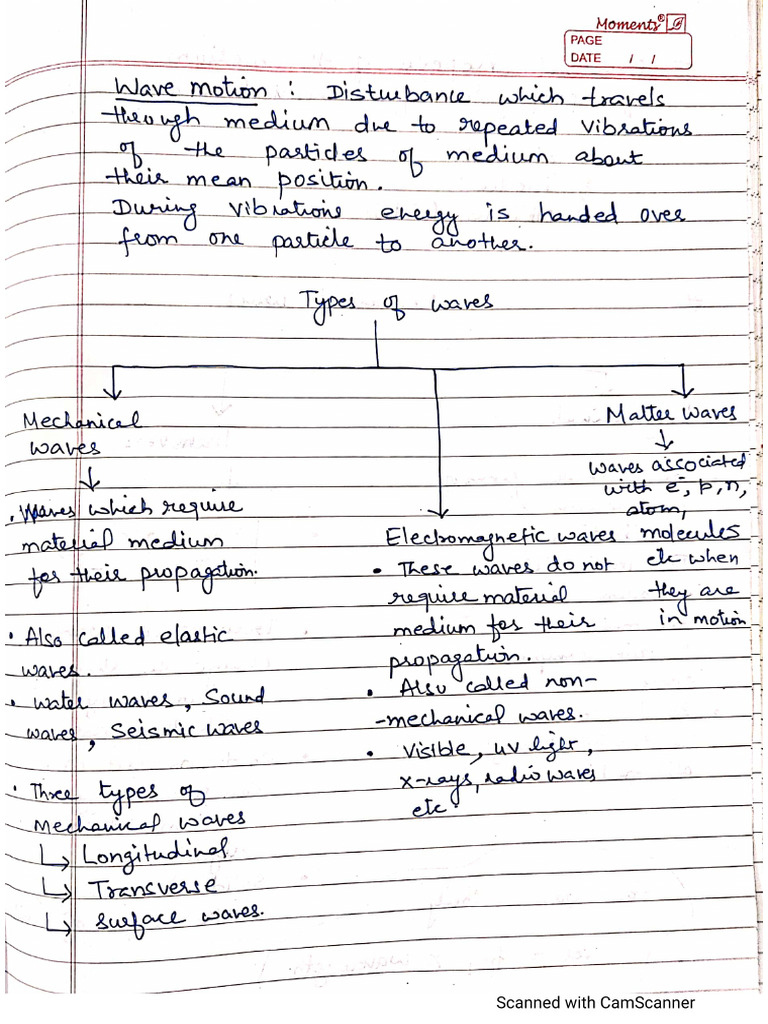 Moments®
PAGE
DATE / /
Wave motion : Disturbance which travels
through medium due to repeated vibrations
of the particles of medium about
their mean position.
During vibrations energy is handed over
from one particle to another.
Types of waves
Mechanical
waves
• Waves which require
material medium
for their propagation.
• Also called elastic
waves.
• water waves, Sound
waves, Seismic waves
• Three types of
Mechanical waves
↳ Longitudinal
↳ Transverse
↳ Surface waves.
Electromagnetic waves
• These waves do not
require material
medium for their
propagation.
• Also called non-
-mechanical waves.
• Visible, uv light,
x-rays, radio waves
etc
Matter waves
↓
waves associated
with e⁻, p, n,
atom,
molecules
etc when
they are
in motion
Scanned with CamScanner